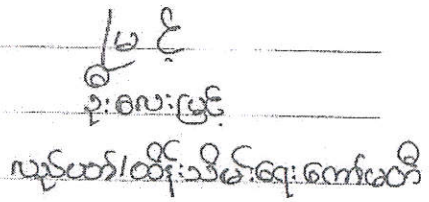 မြင့်
ဦးလေးမြင့်
လုပ်ယာ/ထိန်းသိမ်းရေးကော်မတီ